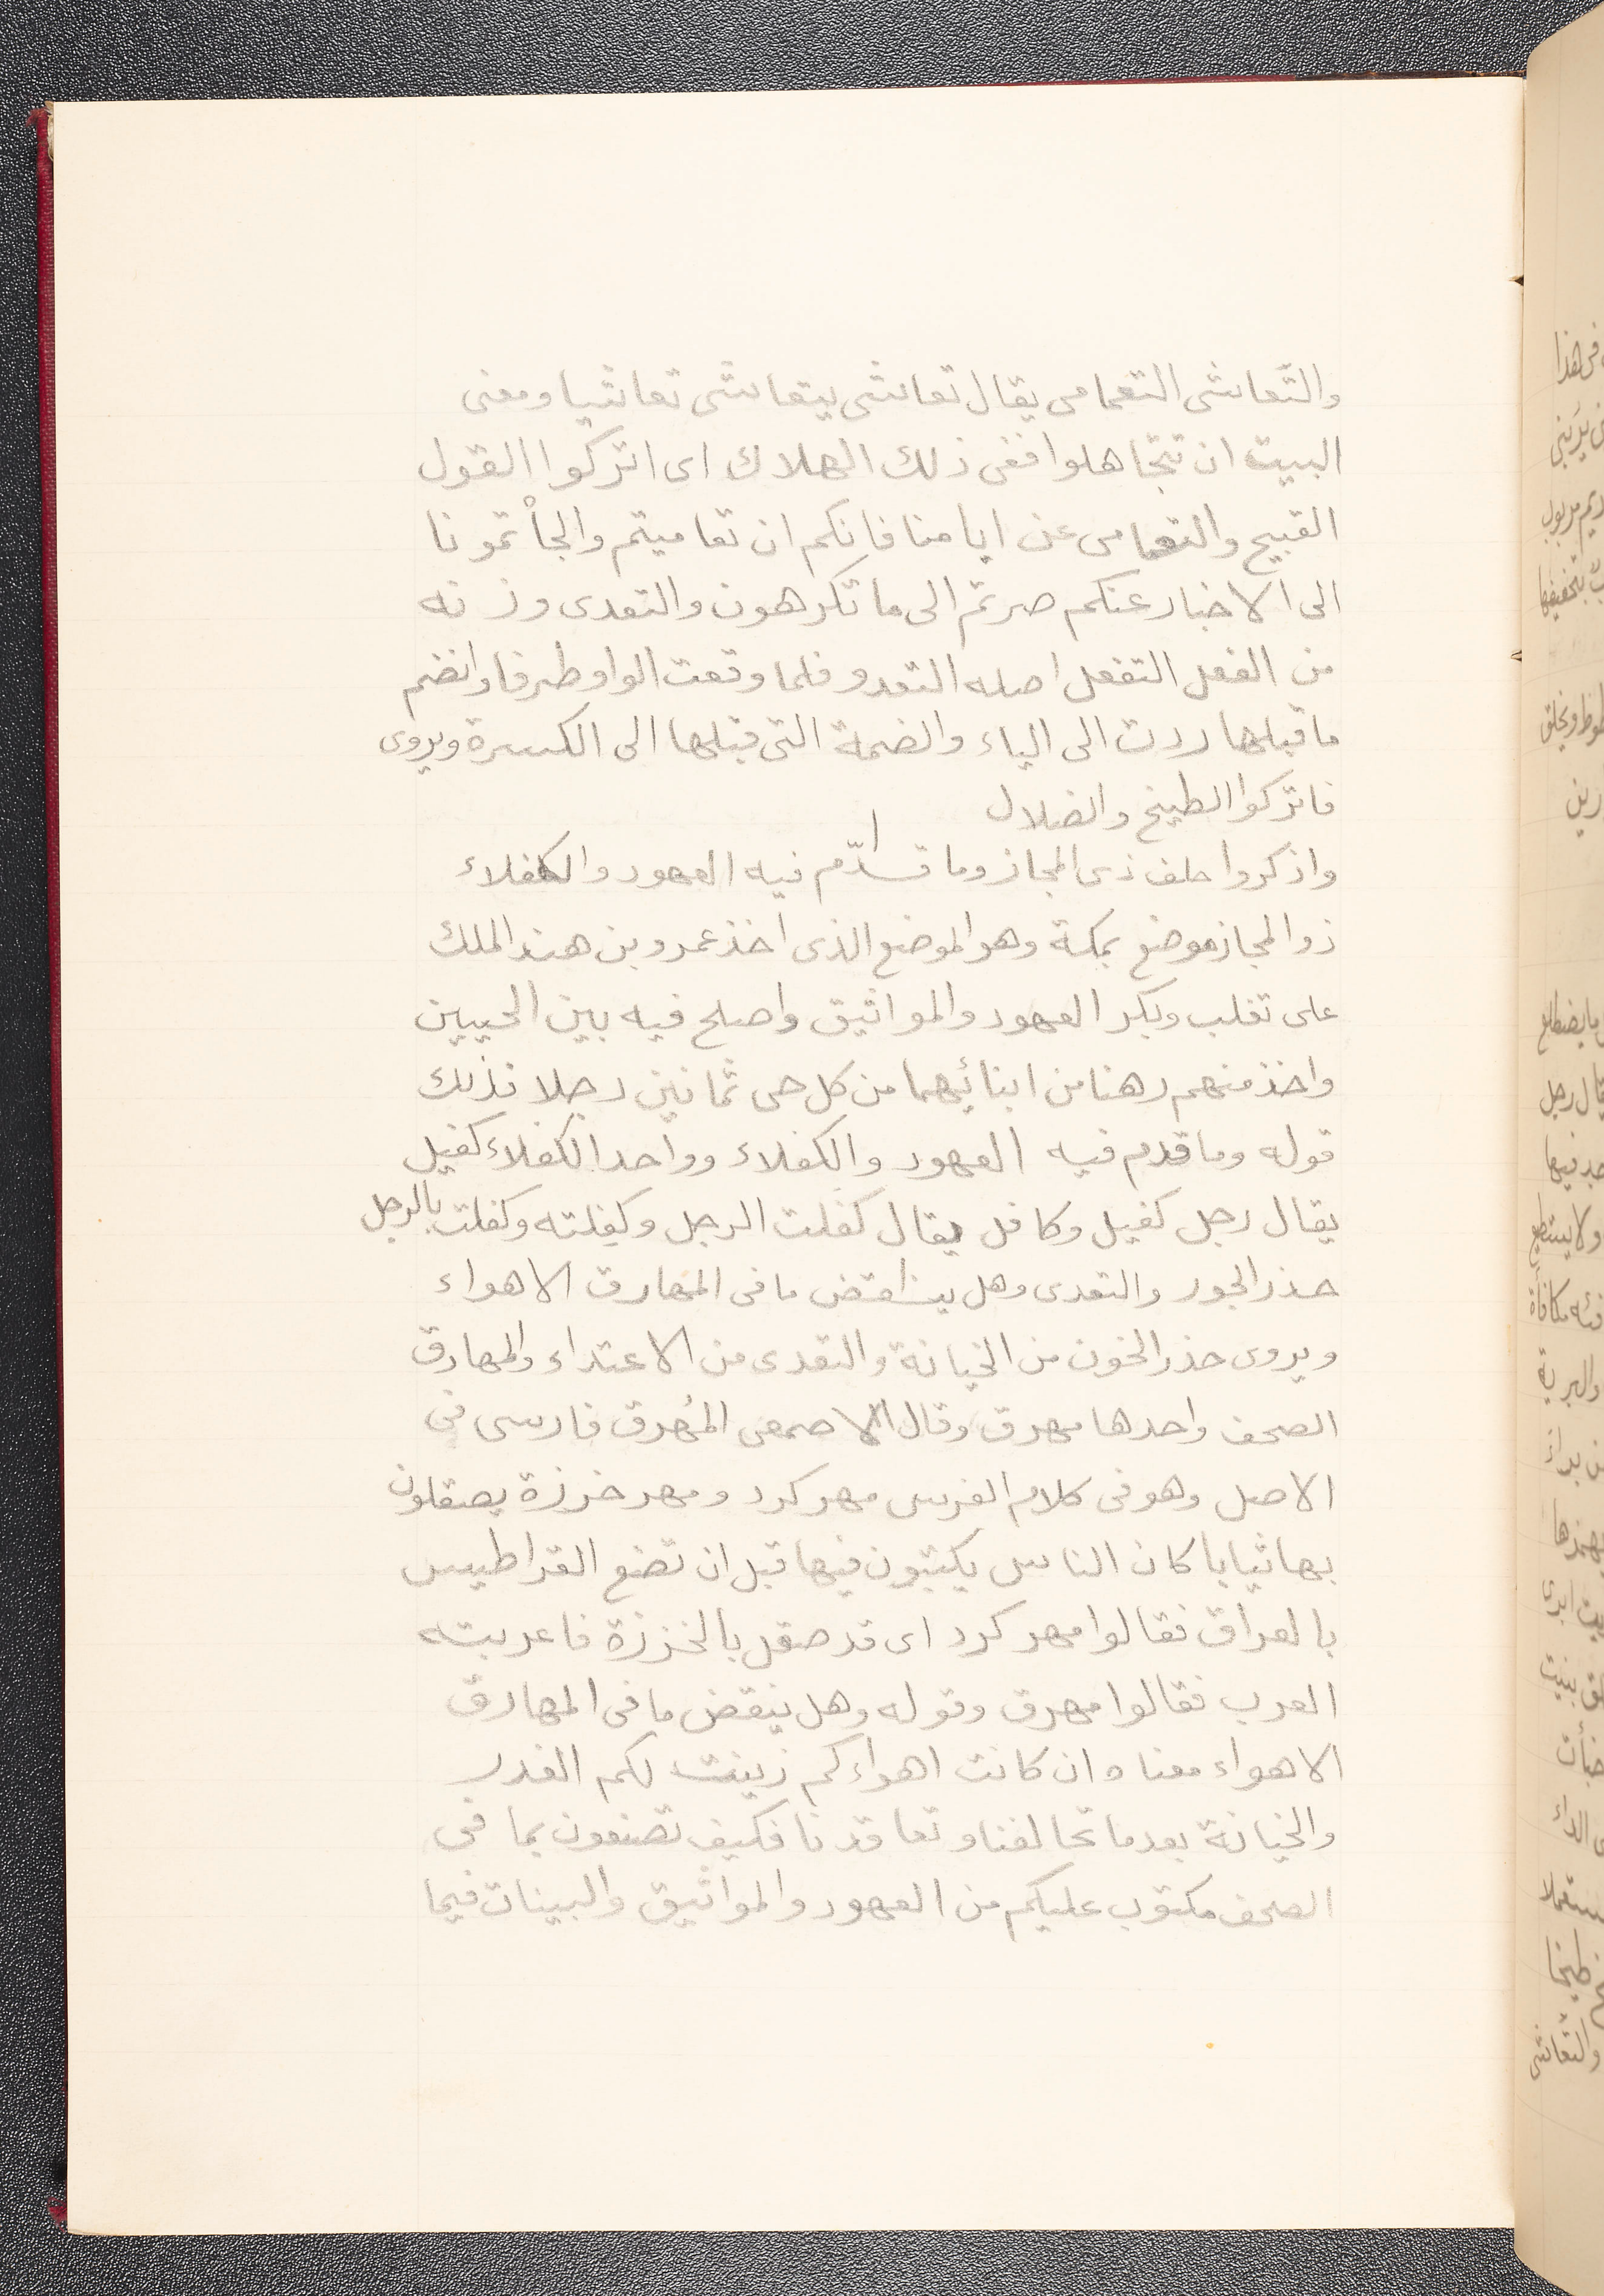 والتّعاشى التعامى يقال تعاشى يتعاشى تعاشيا ومعنى
البيت ان تتجاهلوا ففى ذلك الهلاك اى اتركوا القول
القبيح والتعامى عن ايامنا فانكم ان تعاميتم والجأتمونا
الى الاخبار عنكم صرتم الى ما تكرهون والتعدى وزنه
من الفعل التفعل اصله التعدو فلما وقعت الواو طرفا وانضم
ما قبلها ردت الى الياء والضمة التى قبلها الى الكسرة ويروى
فاتركوا الطيخ والضلال
واذكروا حلف ذى المجاز وما قدّم فيه العهود والكفلاء
ذو المجاز موضع بمكة وهو الموضع الذى اخذ عمرو بن هند الملك
على تغلب وبكر العهود والمواثيق واصلح فيه بين الحيين
واخذ منهم رهنا من ابنائهما من كل حى ثمانين رجلا فذلك
قوله وما قدم فيه العهود والكفلاء وواحد الكفلاء كفيل
يقال رجل كفيل وكافل يقال كفلت الرجل وكفلته وكفلت بالرجل
حذر الجور والتعدى وهل ينقض ما فى المهارق الاهواء
ويروى حذر الخون من الخيانة والتعدى من الاعتداء والمهارق
الصحف واحدها مهرق وقال الاصمعى المُهرق فارسى فى
الاصل وهو فى كلام الفرس مهر كرد ومهر خرزة يصقلون
بها ثيابا كان الناس يكتبون فيها قبل ان تضع القراطيس
بالعراق فقالوا مهر كرد اى قد صقل بالخرزة فاعربته
العرب فقالوا مهرق وقوله وهل ينقض ما فى المهارق
الاهواء معنا وان كانت اهواءكم زينت لكم الغدر
والخيانة بعد ما تحالفنا وتعاقدنا فكيف تصنعون بما فى
الصحف مكتوب عليكم من العهود والمواثيق والبينات فيما